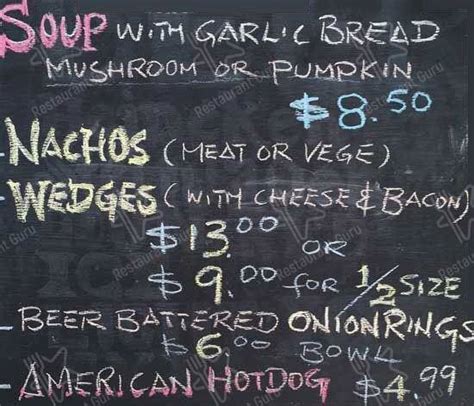 SOUP WITH GARLIC BREAD
MUSHROOM OR PUMPKIN
$8.50
- NACHOS (MEAT OR VEGE)
- WEDGES (WITH CHEESE & BACON)
$13.00 OR
$9.00 FOR 1/2 SIZE
- BEER BATTERED ONION RINGS
$6.00 BOWL
- AMERICAN HOTDOG $4.99